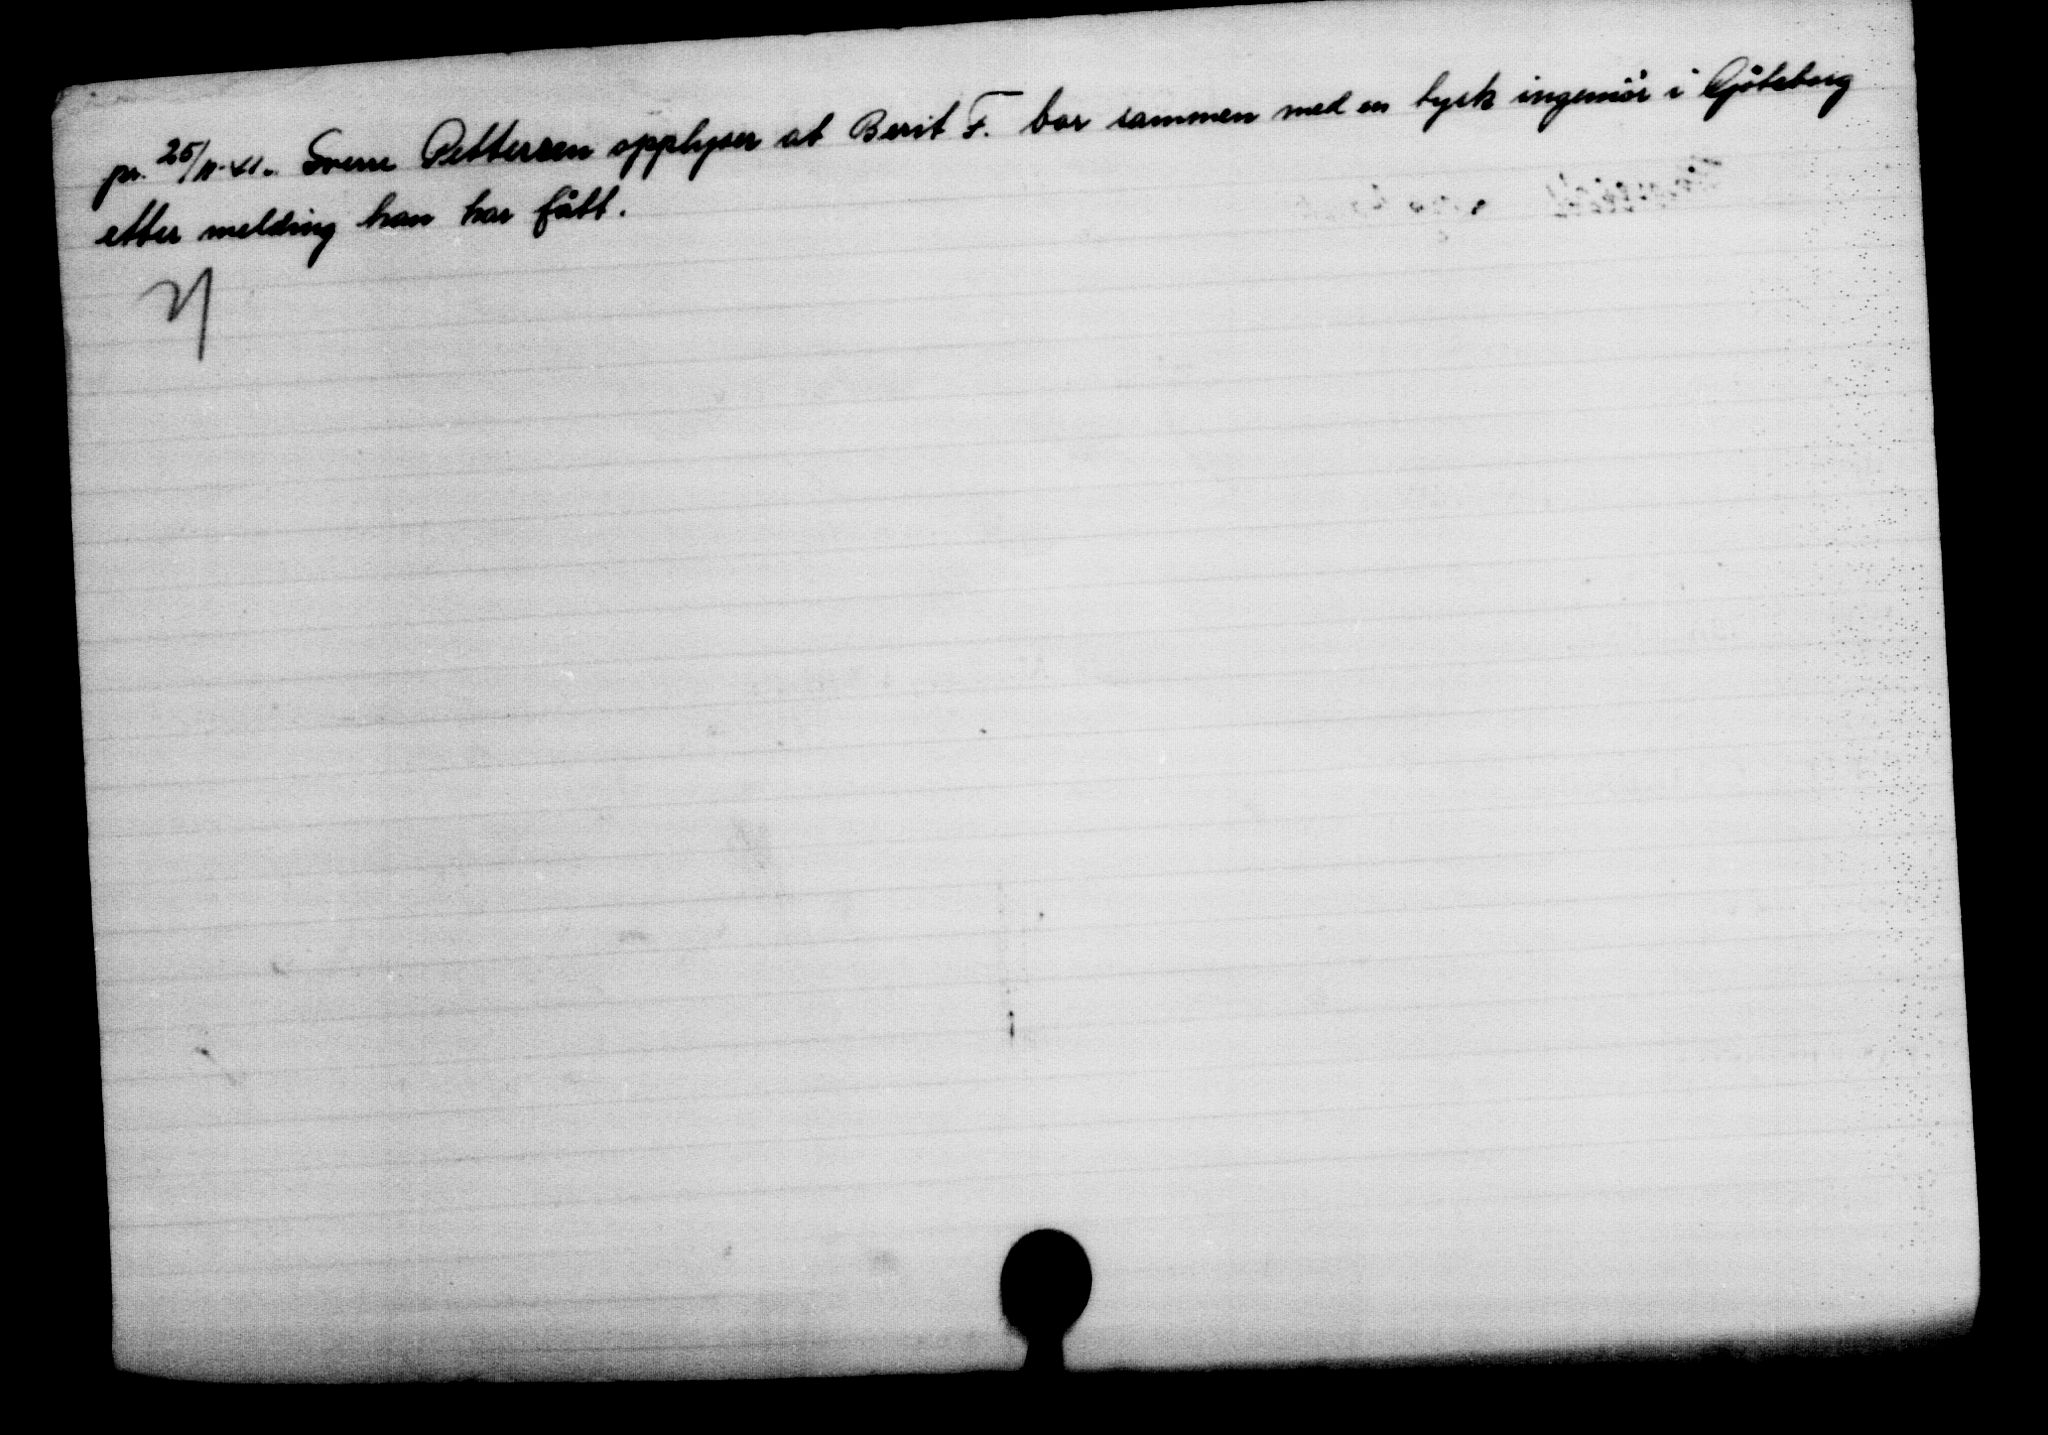 pr. 25/11-41. Sverre Pettersen opplyser at Berit F. bor sammen med en tysk ingeniör i Göteborg
etter melding han har fått.